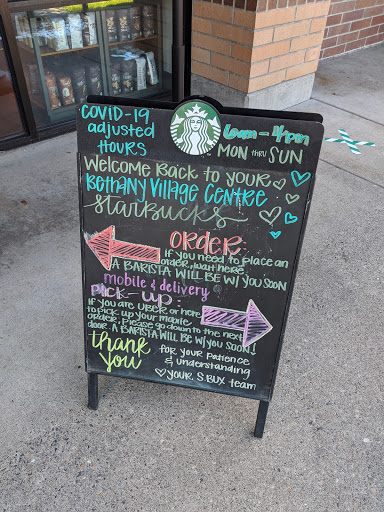 COVID-19
adjusted
HOURS
6am - 4pm
MON THRU SUN
Welcome Back to your
Bethany Village Centre
Starbucks
ORDER:
IF you need to place an
order, wait here.
A BARISTA WILL BE W/ YOU SOON
mobile & delivery
PICK-UP:
IF you are UBER or here
to pick up your mobile
order, please go down to the next
door. A BARISTA WILL BE W/ YOU SOON!
thank
you
for your patience
& understanding
♡ your S.BUX team